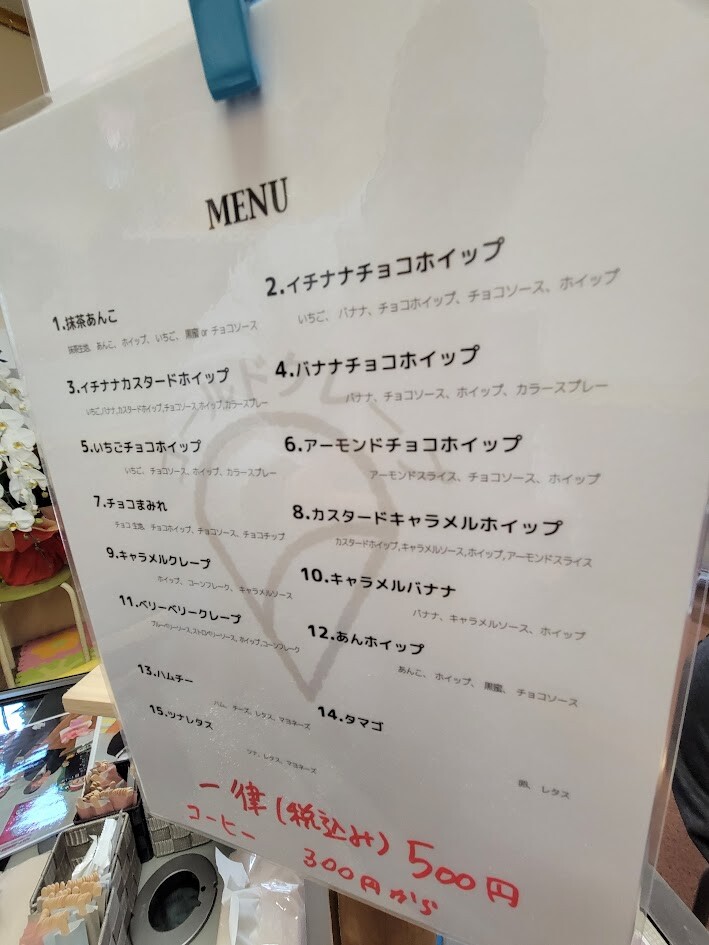 MENU
1.抹茶あんこ
抹茶生地、あんこ、ホイップ、いちご、黒蜜 or チョコソース
2.イチナナチョコホイップ
いちご、バナナ、チョコホイップ、チョコソース、ホイップ
3.イチナナカスタードホイップ
いちご,バナナ,カスタードホイップ,チョコソース,ホイップ,カラースプレー
4.バナナチョコホイップ
バナナ、チョコソース、ホイップ、カラースプレー
5.いちごチョコホイップ
いちご、チョコソース、ホイップ、カラースプレー
6.アーモンドチョコホイップ
アーモンドスライス、チョコソース、ホイップ
7.チョコまみれ
チョコ生地、チョコホイップ、チョコソース、チョコチップ
8.カスタードキャラメルホイップ
カスタードホイップ,キャラメルソース,ホイップ,アーモンドスライス
9.キャラメルクレープ
ホイップ、コーンフレーク、キャラメルソース
10.キャラメルバナナ
バナナ、キャラメルソース、ホイップ
11.ベリーベリークレープ
ブルーベリーソース,ストロベリーソース,ホイップ,コーンフレーク
12.あんホイップ
あんこ、ホイップ、黒蜜、チョコソース
13.ハムチー
ハム、チーズ、レタス、マヨネーズ
14.タマゴ
卵、レタス
15.ツナレタス
ツナ、レタス、マヨネーズ
一律(税込み)500円
コーヒー 300円から